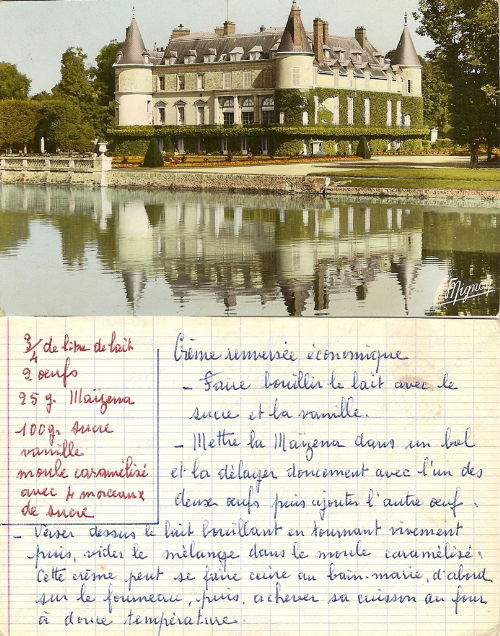 Mignon
3/4 de litre de lait
2 œufs
25 g. Maïzena
100 g. sucre
vanille
moule caramélisé
avec 4 morceaux
de sucre
Crème renversée économique
- Faire bouillir le lait avec le
sucre et la vanille.
- Mettre la Maïzena dans un bol
et la délayer doucement avec l'un des
deux œufs puis ajouter l'autre œuf.
- Verser dessus le lait bouillant en tournant vivement
puis, vider le mélange dans le moule caramélisé.
Cette crème peut se faire cuire au bain-marie, d'abord
sur le fourneau, puis, achever sa cuisson au four
à douce température.